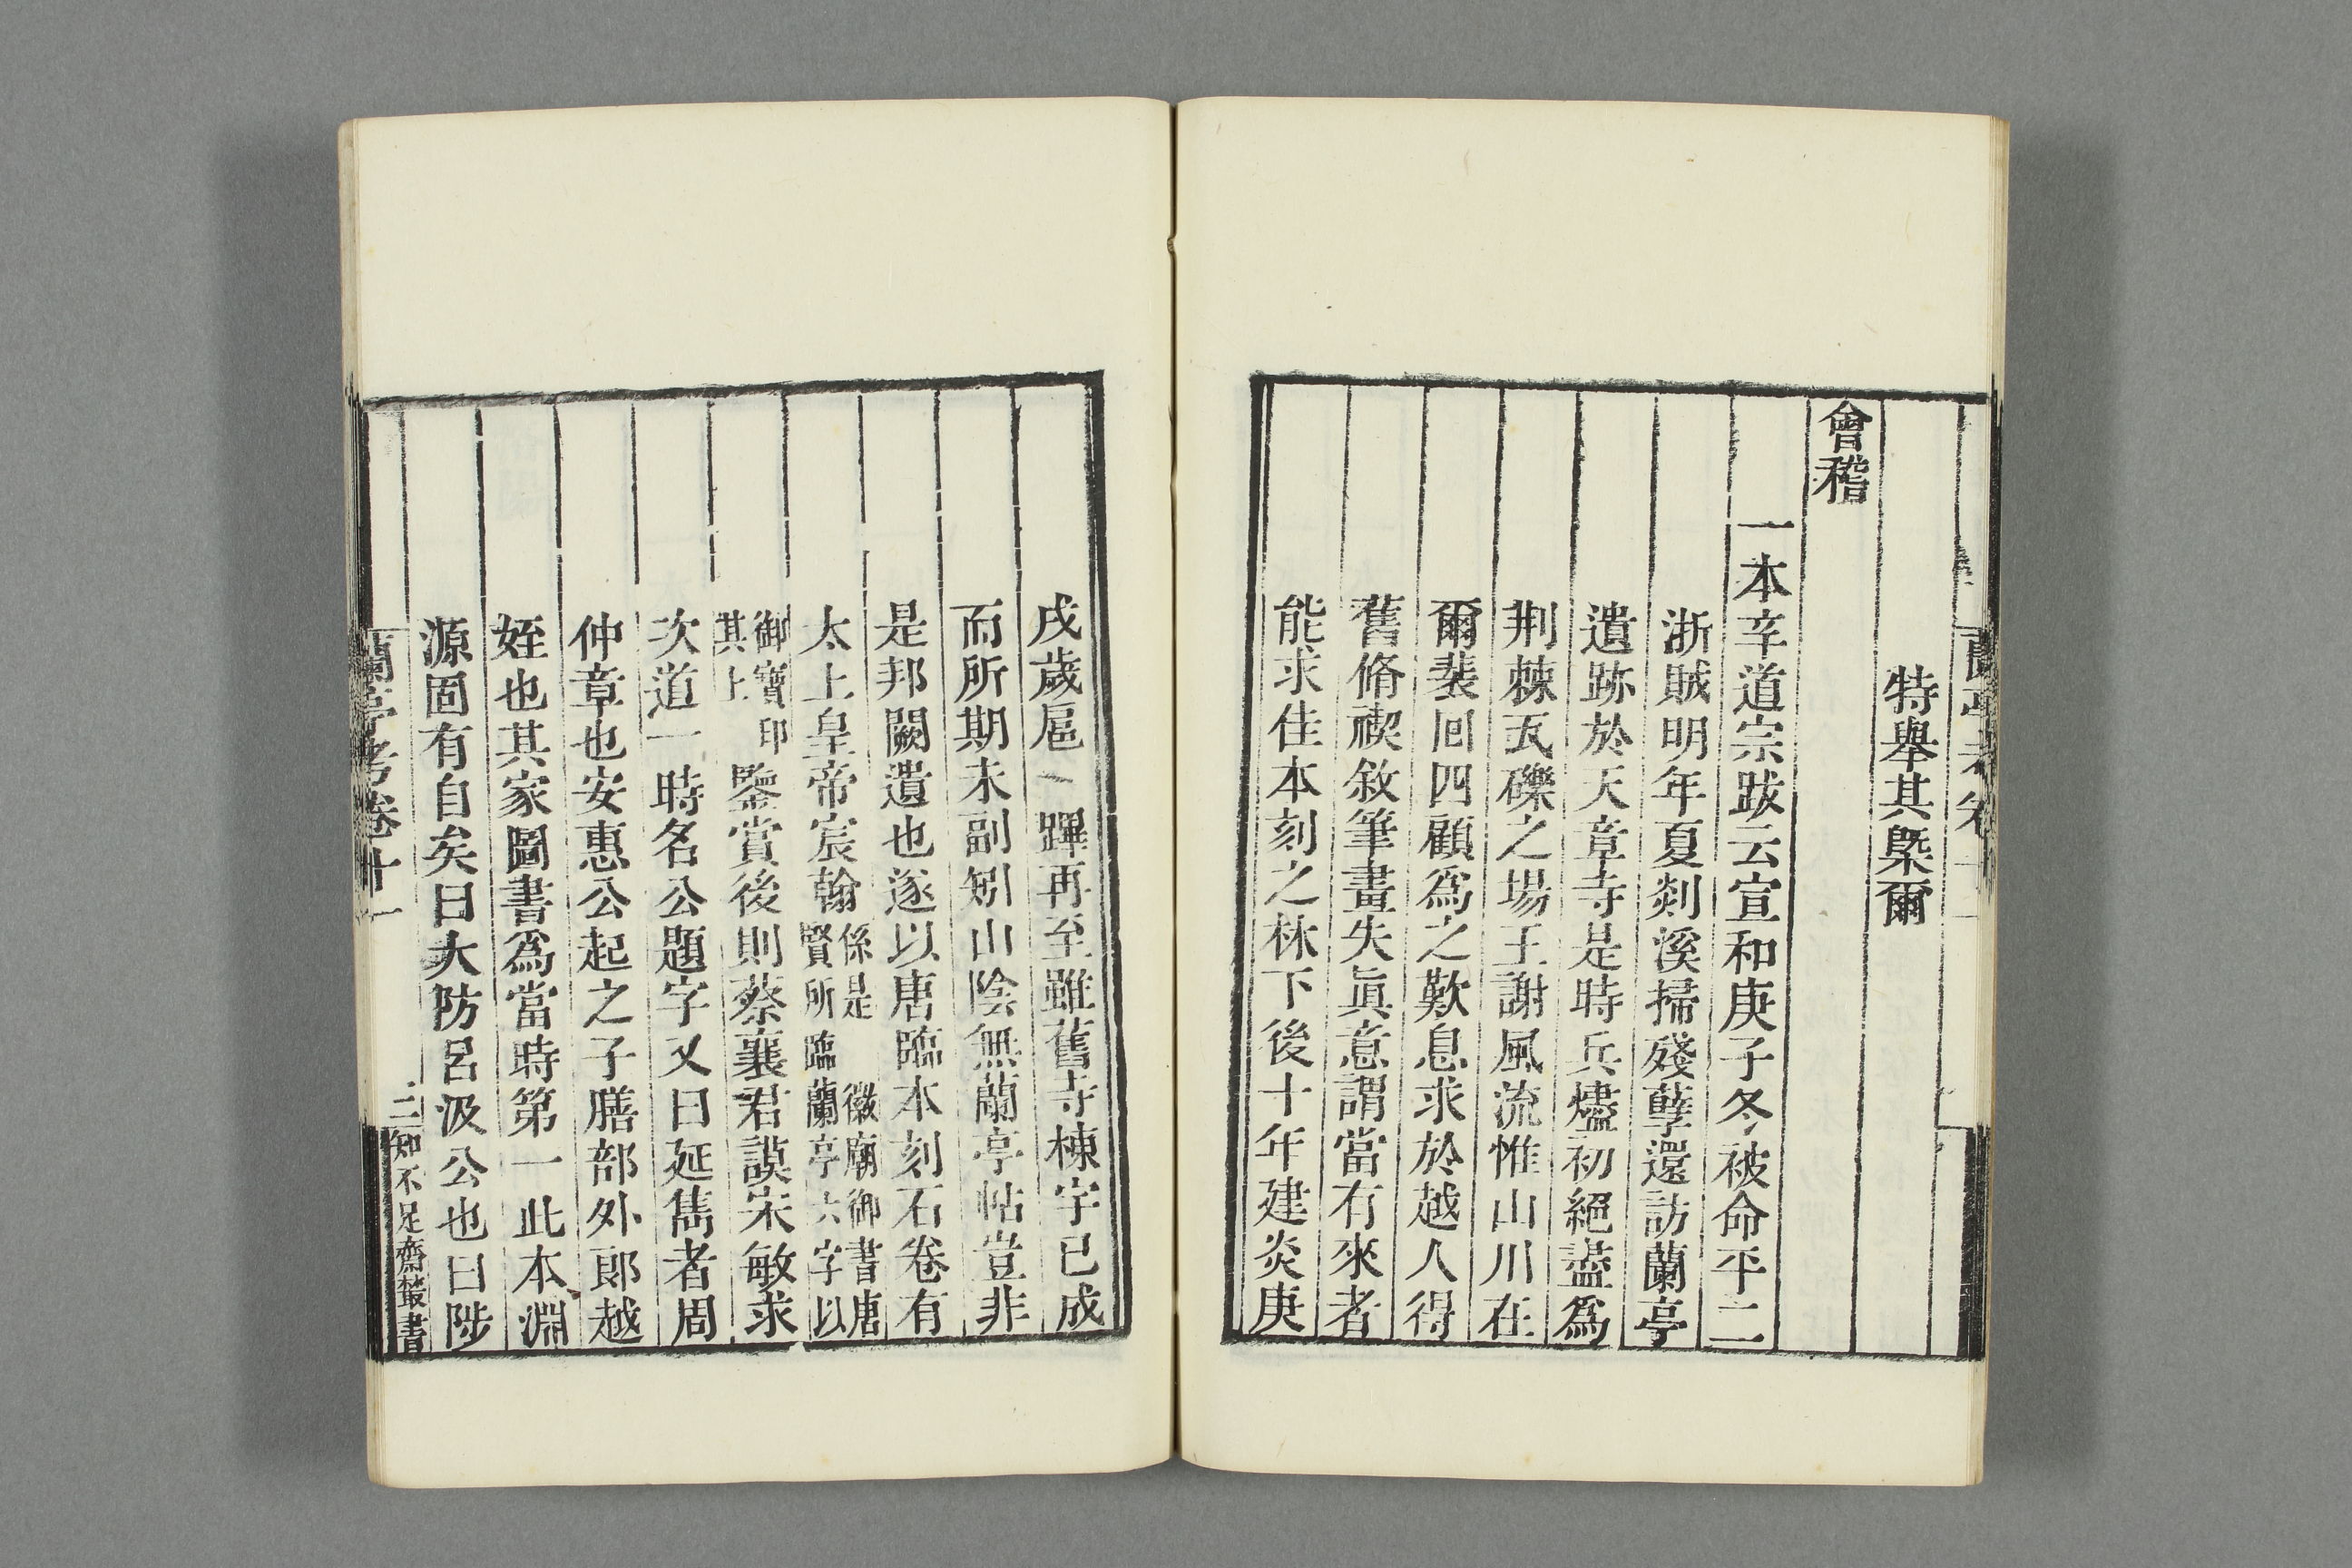 特舉其槩爾
會稽
一本辛道宗跋云宣和庚子冬被命平二
浙賊明年夏剡溪掃殘孽還訪蘭亭
遺跡於天章寺是時兵燼初絕蓋爲
荆棘瓦礫之場王謝風流惟山川在
爾裴回四顧爲之歎息求於越人得
舊脩禊敘筆畫失眞意謂當有來者
能求佳本刻之林下後十年建炎庚
戌歲扈蹕再至雖舊寺棟宇已成
而所期未副矧山陰無蘭亭帖豈非
是邦闕遺也遂以唐臨本刻石卷有
太上皇帝宸翰係是 徽廟御書唐
賢所臨蘭亭六字以
御寶印
其上 鑒賞後則蔡襄君謨宋敏求
次道一時名公題字又曰延雋者周
仲章也安惠公起之子膳部外郎越
姪也其家圖書爲當時第一此本淵
源固有自矣曰大防呂汲公也曰陟
蘭亭考卷十一 二 知不足齋叢書